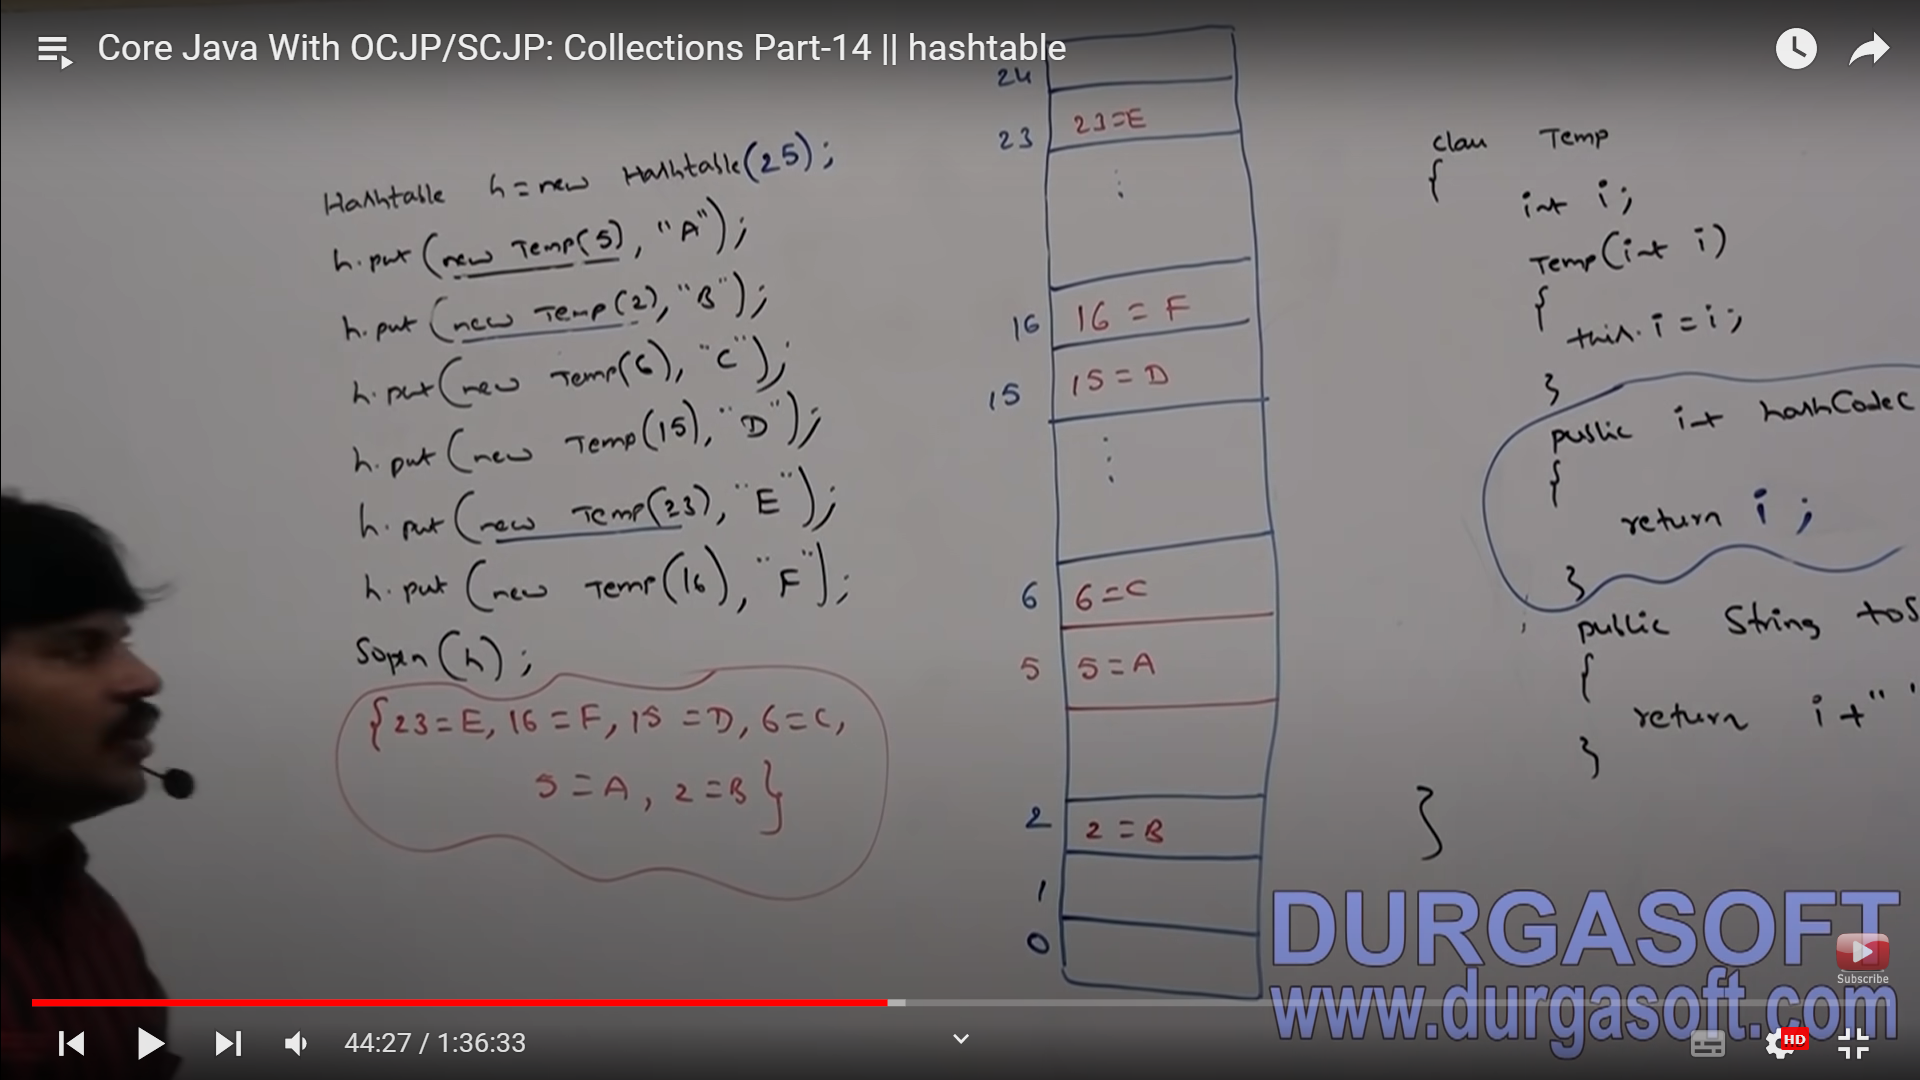 Core Java With OCJP/SCJP: Collections Part-14 || hashtable
Hashtable h = new Hashtable(25);
h.put(new Temp(5), "A");
h.put(new Temp(2), "B");
h.put(new Temp(6), "C");
h.put(new Temp(15), "D");
h.put(new Temp(23), "E");
h.put(new Temp(16), "F");
Sopln(h);
{23=E, 16=F, 15=D, 6=C,
5=A, 2=B}
24
23 23=E
⋮
16 16=F
15 15=D
⋮
6 6=C
5 5=A
2 2=B
1
0
class Temp
{
int i;
Temp(int i)
{
this.i = i;
}
public int hashCode(
{
return i;
}
public String toS
{
return i+"
}
}
DURGASOFT
www.durgasoft.com
Subscribe
44:27 / 1:36:33
HD